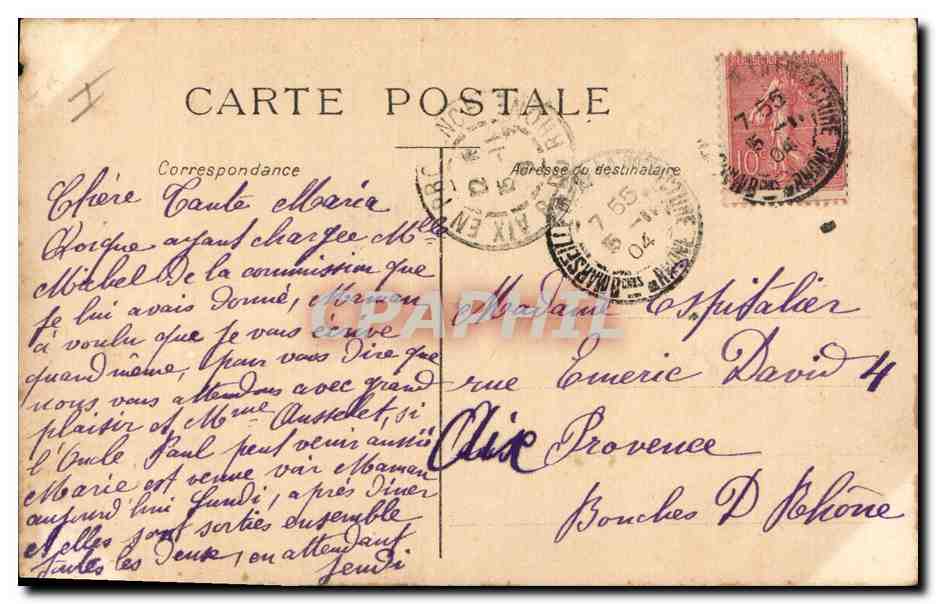 CARTE POSTALE
Correspondance
Adresse du destinataire
10c
7-55
5-1
04
AIX EN PROVENCE
B. DU RHONE
7-55
5-1
04
MARSEILLE
Chère Tante Maria
Quoique ayant chargée Mlle
Michel de la commission que
je lui avais donné, Maman
à voulu que je vous écrive
quand même, pour vous dire que
nous vous attendons avec grand
plaisir et Mme Ausselet, si
l'Oncle Paul peut venir aussi
Marie est venue voir Maman
aujourd'hui Lundi, après diner
et elles sont sorties ensemble
toutes les deux, en attendant
Jeudi
Madame Espitalier
rue Emeric David 4
Aix Provence
Bouches D Rhône
CPAPHIL